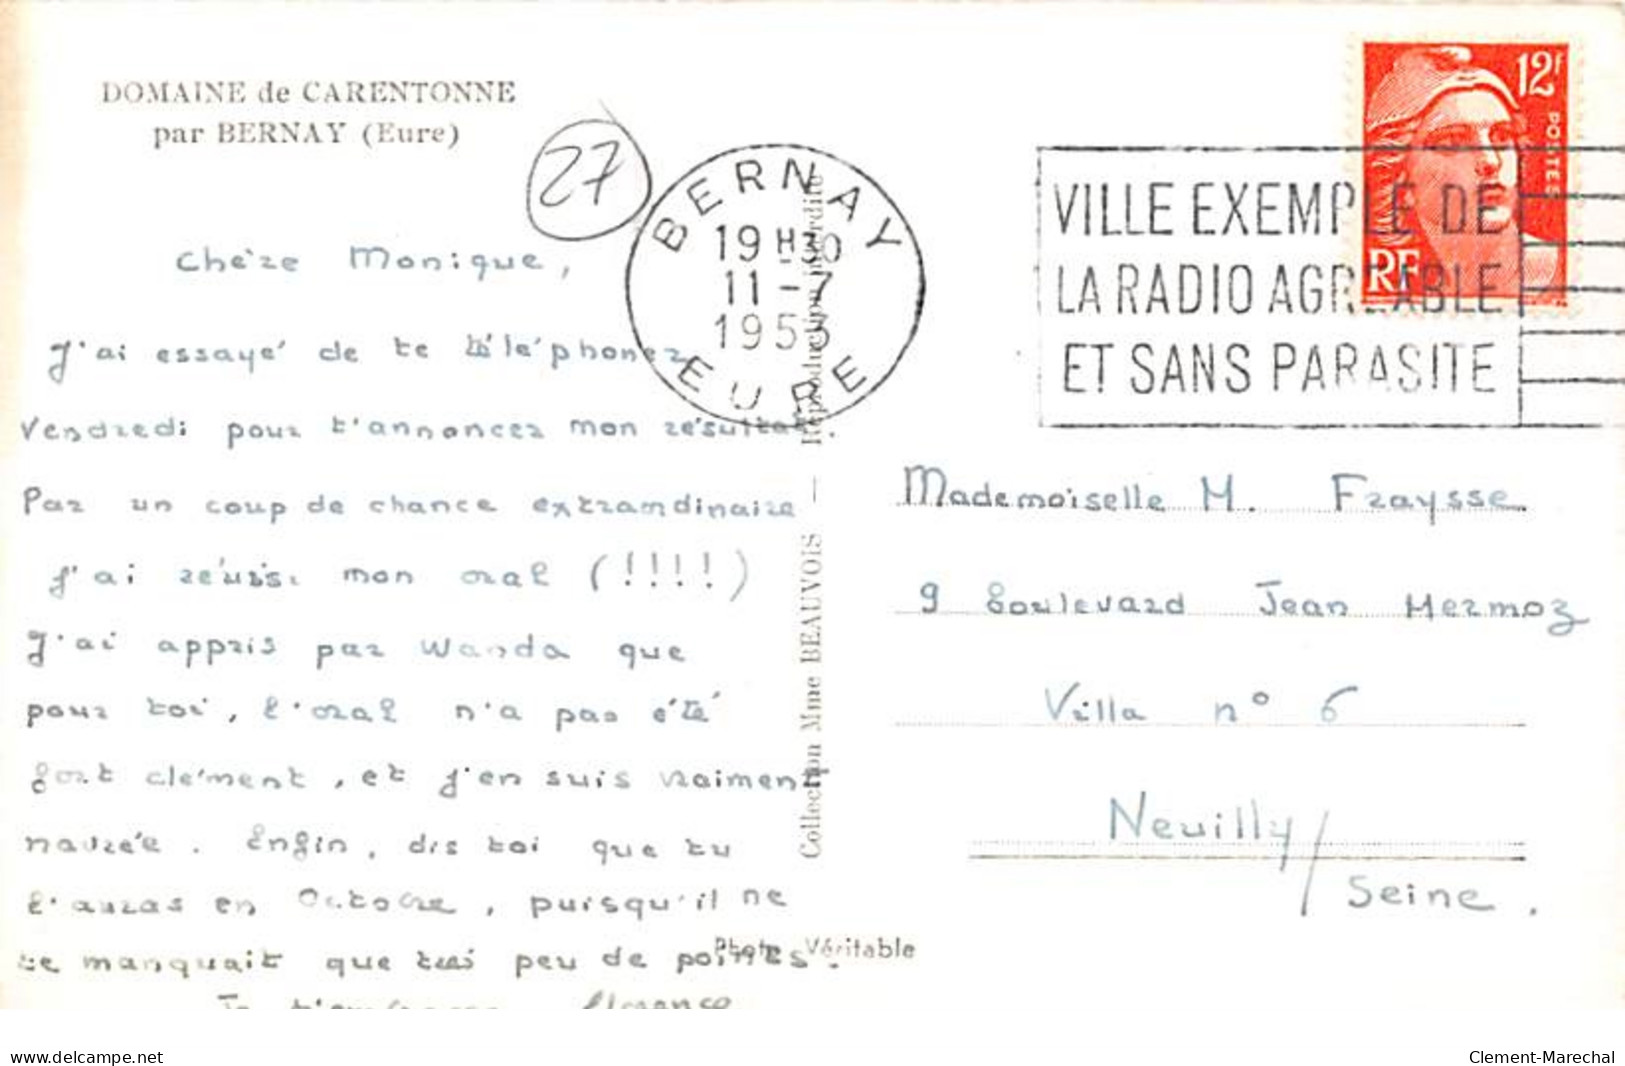 DOMAINE de CARENTONNE
par BERNAY (Eure)
27
BERNAY
19 H30
11 - 7
1953
EURE
VILLE EXEMPLE DE
LA RADIO AGREABLE
ET SANS PARASITE
12F
POSTES
RF
Chère Monique,
J'ai essayé de te téléphoner
Vendredi pour t'annoncer mon résultat.
Par un coup de chance extraordinaire
J'ai réussi mon oral (!!!!)
J'ai appris par Wanda que
pour toi, l'oral n'a pas été
fort clément, et j'en suis vraiment
navrée. Enfin, dis toi que tu
l'auras en Octobre, puisqu'il ne
te manquait que très peu de points.
Je t'embrasse Florence
Collection Mme BEAUVOIS — Reproduction interdite
Photo Véritable
Mademoiselle M. Fraysse.
9 boulevard Jean Mermoz
Villa n° 6
Neuilly/
Seine.
www.delcampe.net
Clement-Marechal